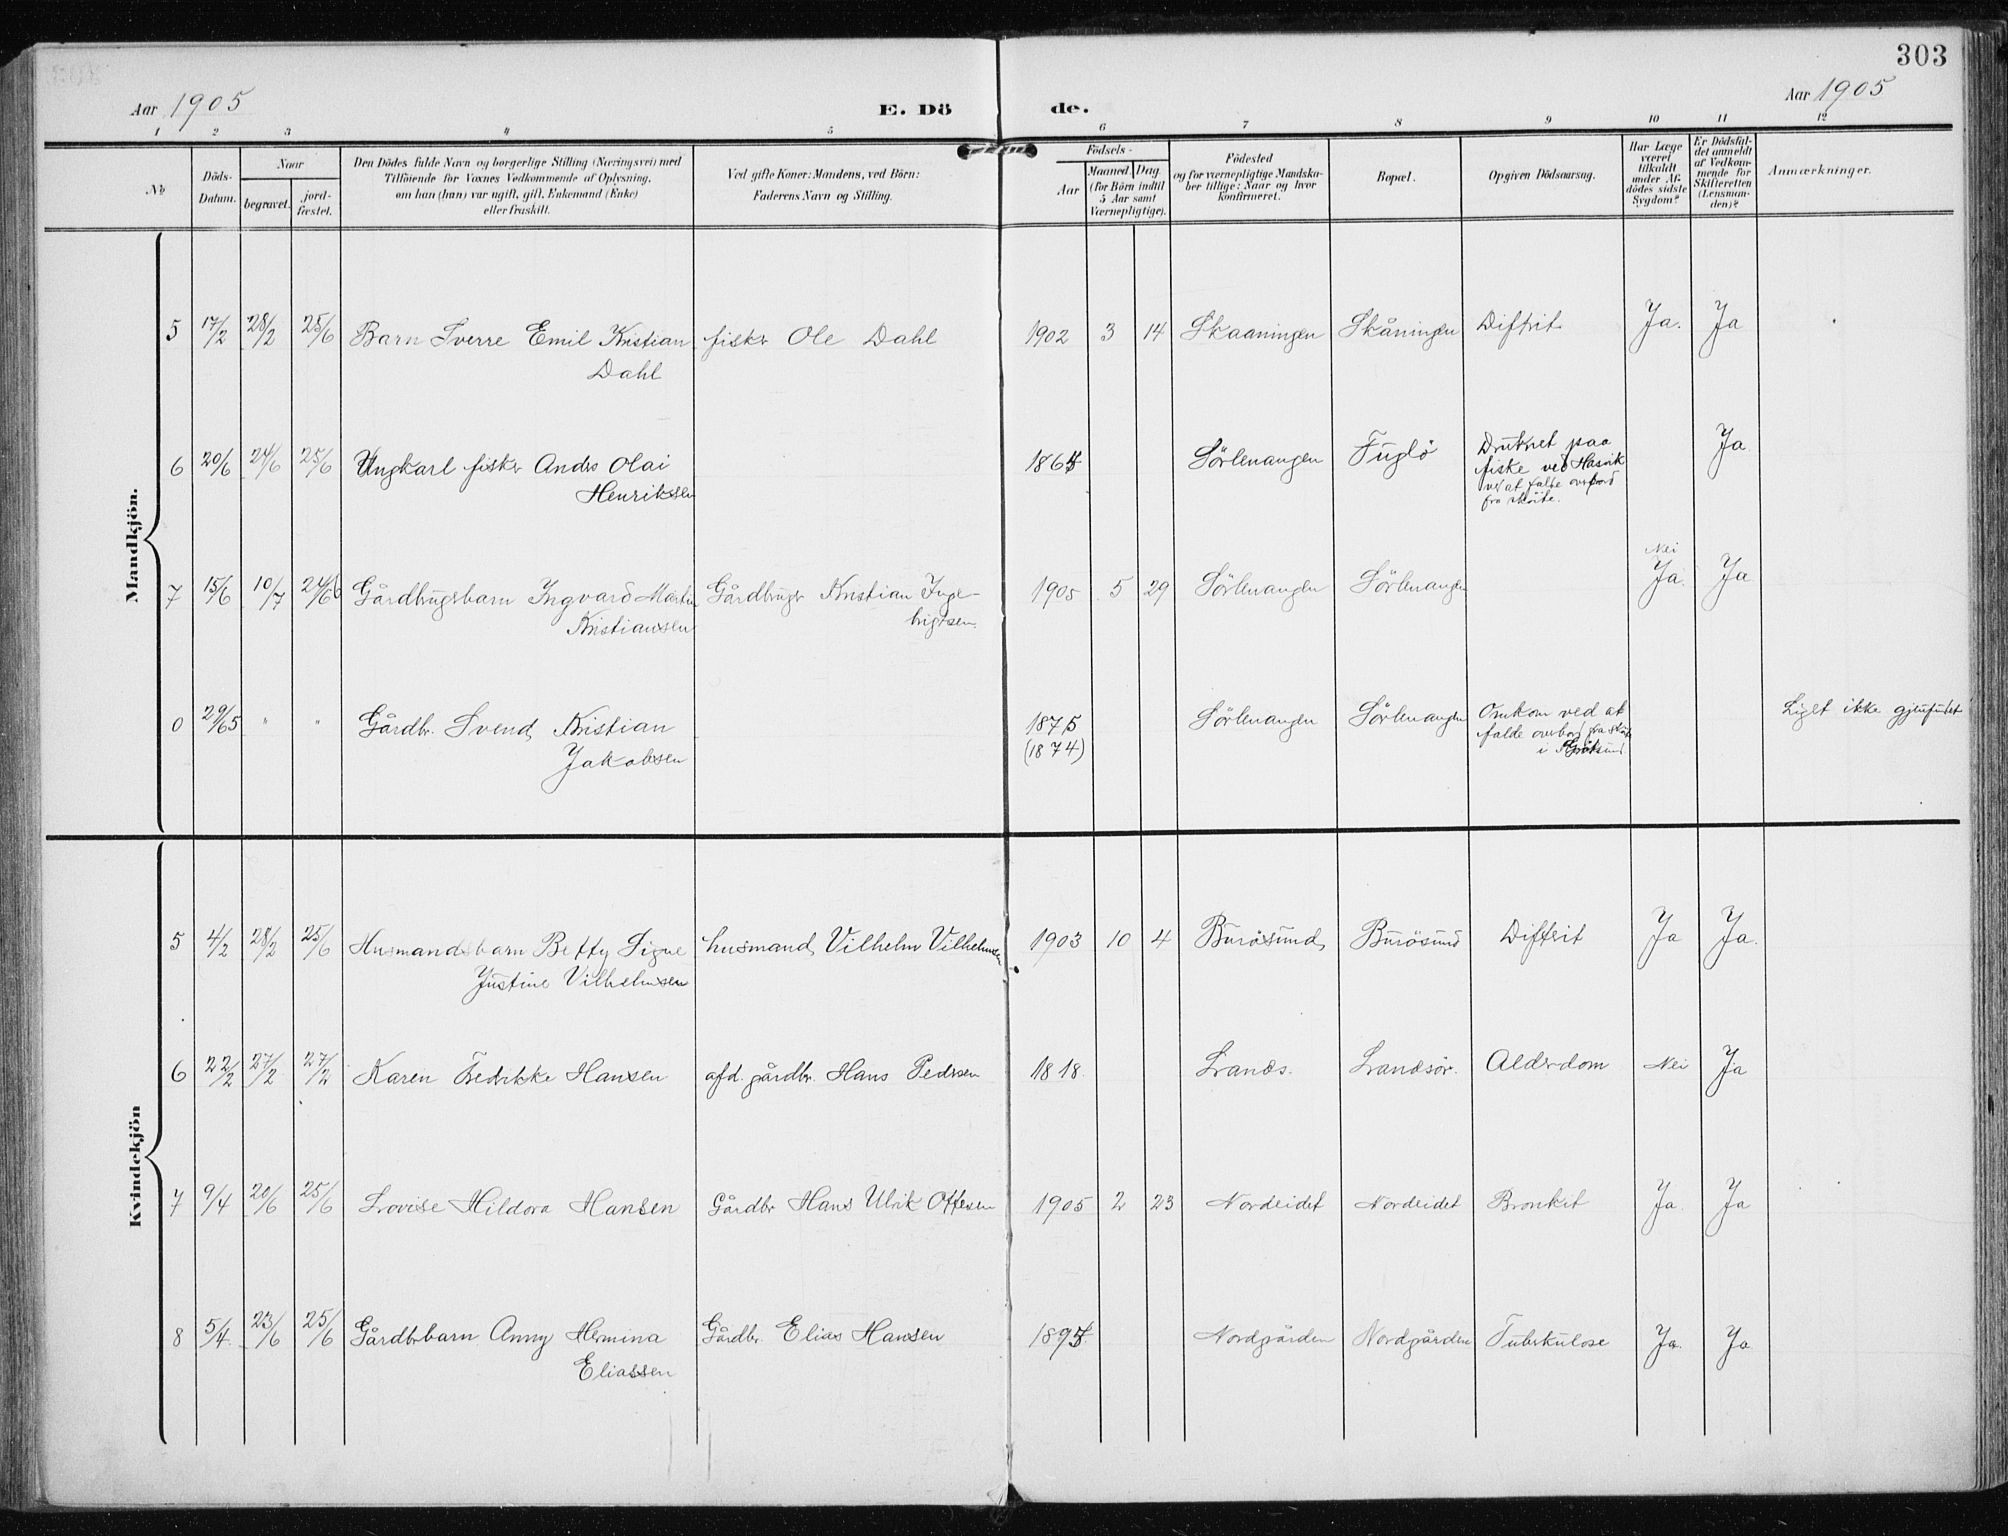 303
Aar 1905 E. Dö de. Aar 1905
1 2 3 4 5 6 7 8 9 10 11 12
No.
Döds-
Datum.
Naar
begravet.
jord-
fæstet.
Den Dödes fulde Navn og borgerlige Stilling (Næringsvei) med
Tilföiende for Voxnes Vedkommende af Oplysning,
om han (hun) var ugift, gift, Enkemand (Enke)
eller fraskilt.
Ved gifte Koner: Mandens, ved Börn:
Faderens Navn og Stilling.
Födsels-
Aar
Maaned. Dag.
(for Börn indtil
5 Aar samt
Værnepligtige).
Födested
og for værnepligtige Mandska-
ber tillige: Naar og hvor
konfirmeret.
Bopæl.
Opgiven Dödsaarsag.
Har Læge
været
tilkaldt
under Af-
dödes sidste
Sygdom?
Er Dödsfal-
det anmeldt
af Vedkom-
mende for
Skifteretten
(Lensman-
den)?
Anmærkninger.
Mandkjön.
5 17/2 28/2 25/6 Barn Sverre Emil Kristian fisker Ole Dahl 1902 3 14 Skaaningen Skåningen Diftrit Ja. Ja
Dahl
6 20/6 24/6 25/6 Ungkarl fisker Andrs Olai Sörlenangen Fuglö Druknet paa Ja
Henriksen fiske ved Hasvik
ved at falde overbord
fra skøite.
Nei
7 15/6 10/7 24/6 Gårdbrugsbarn Ingvard Martin Gårdbruger Kristian Inge- 1905 5 29 Sörlenangen Sörlenangen Ja. Ja
Kristiansen brigtsen
0 29/65 " " Gårdbr. Svend Kristian 1875 Sörlenangen Sörlenangen Omkom ved at Liget ikke gjenfundet
Jakobsen (1874) falde overbord fra
i
Kvindekjön
5 4/2 28/2 25/6 Husmandsbarn Betty Signe husmand Vilhelm Vilhelmsen 1903 10 4 Burösund Burösund Diftrit Ja Ja.
Justine Vilhelmsen
6 22/2 27/2 27/2 Karen Fredrikke Hansen afd. gårdbr. Hans Pedersen 1818 Lands. Landsör. Alderdom Nei Ja
7 9/4 20/6 25/6 Lovise Hildora Hansen Gårdbr Hans Ulrik Ottesen 1905 2 23 Nordeidet Nordeidet Bronkit Ja. Ja
8 5/4 23/6 25/6 Gårdbrbarn Anny Hermina Gårdbr. Elias Hansen Nordgården Nordgården Tuberkulose Ja. Ja
Eliassen